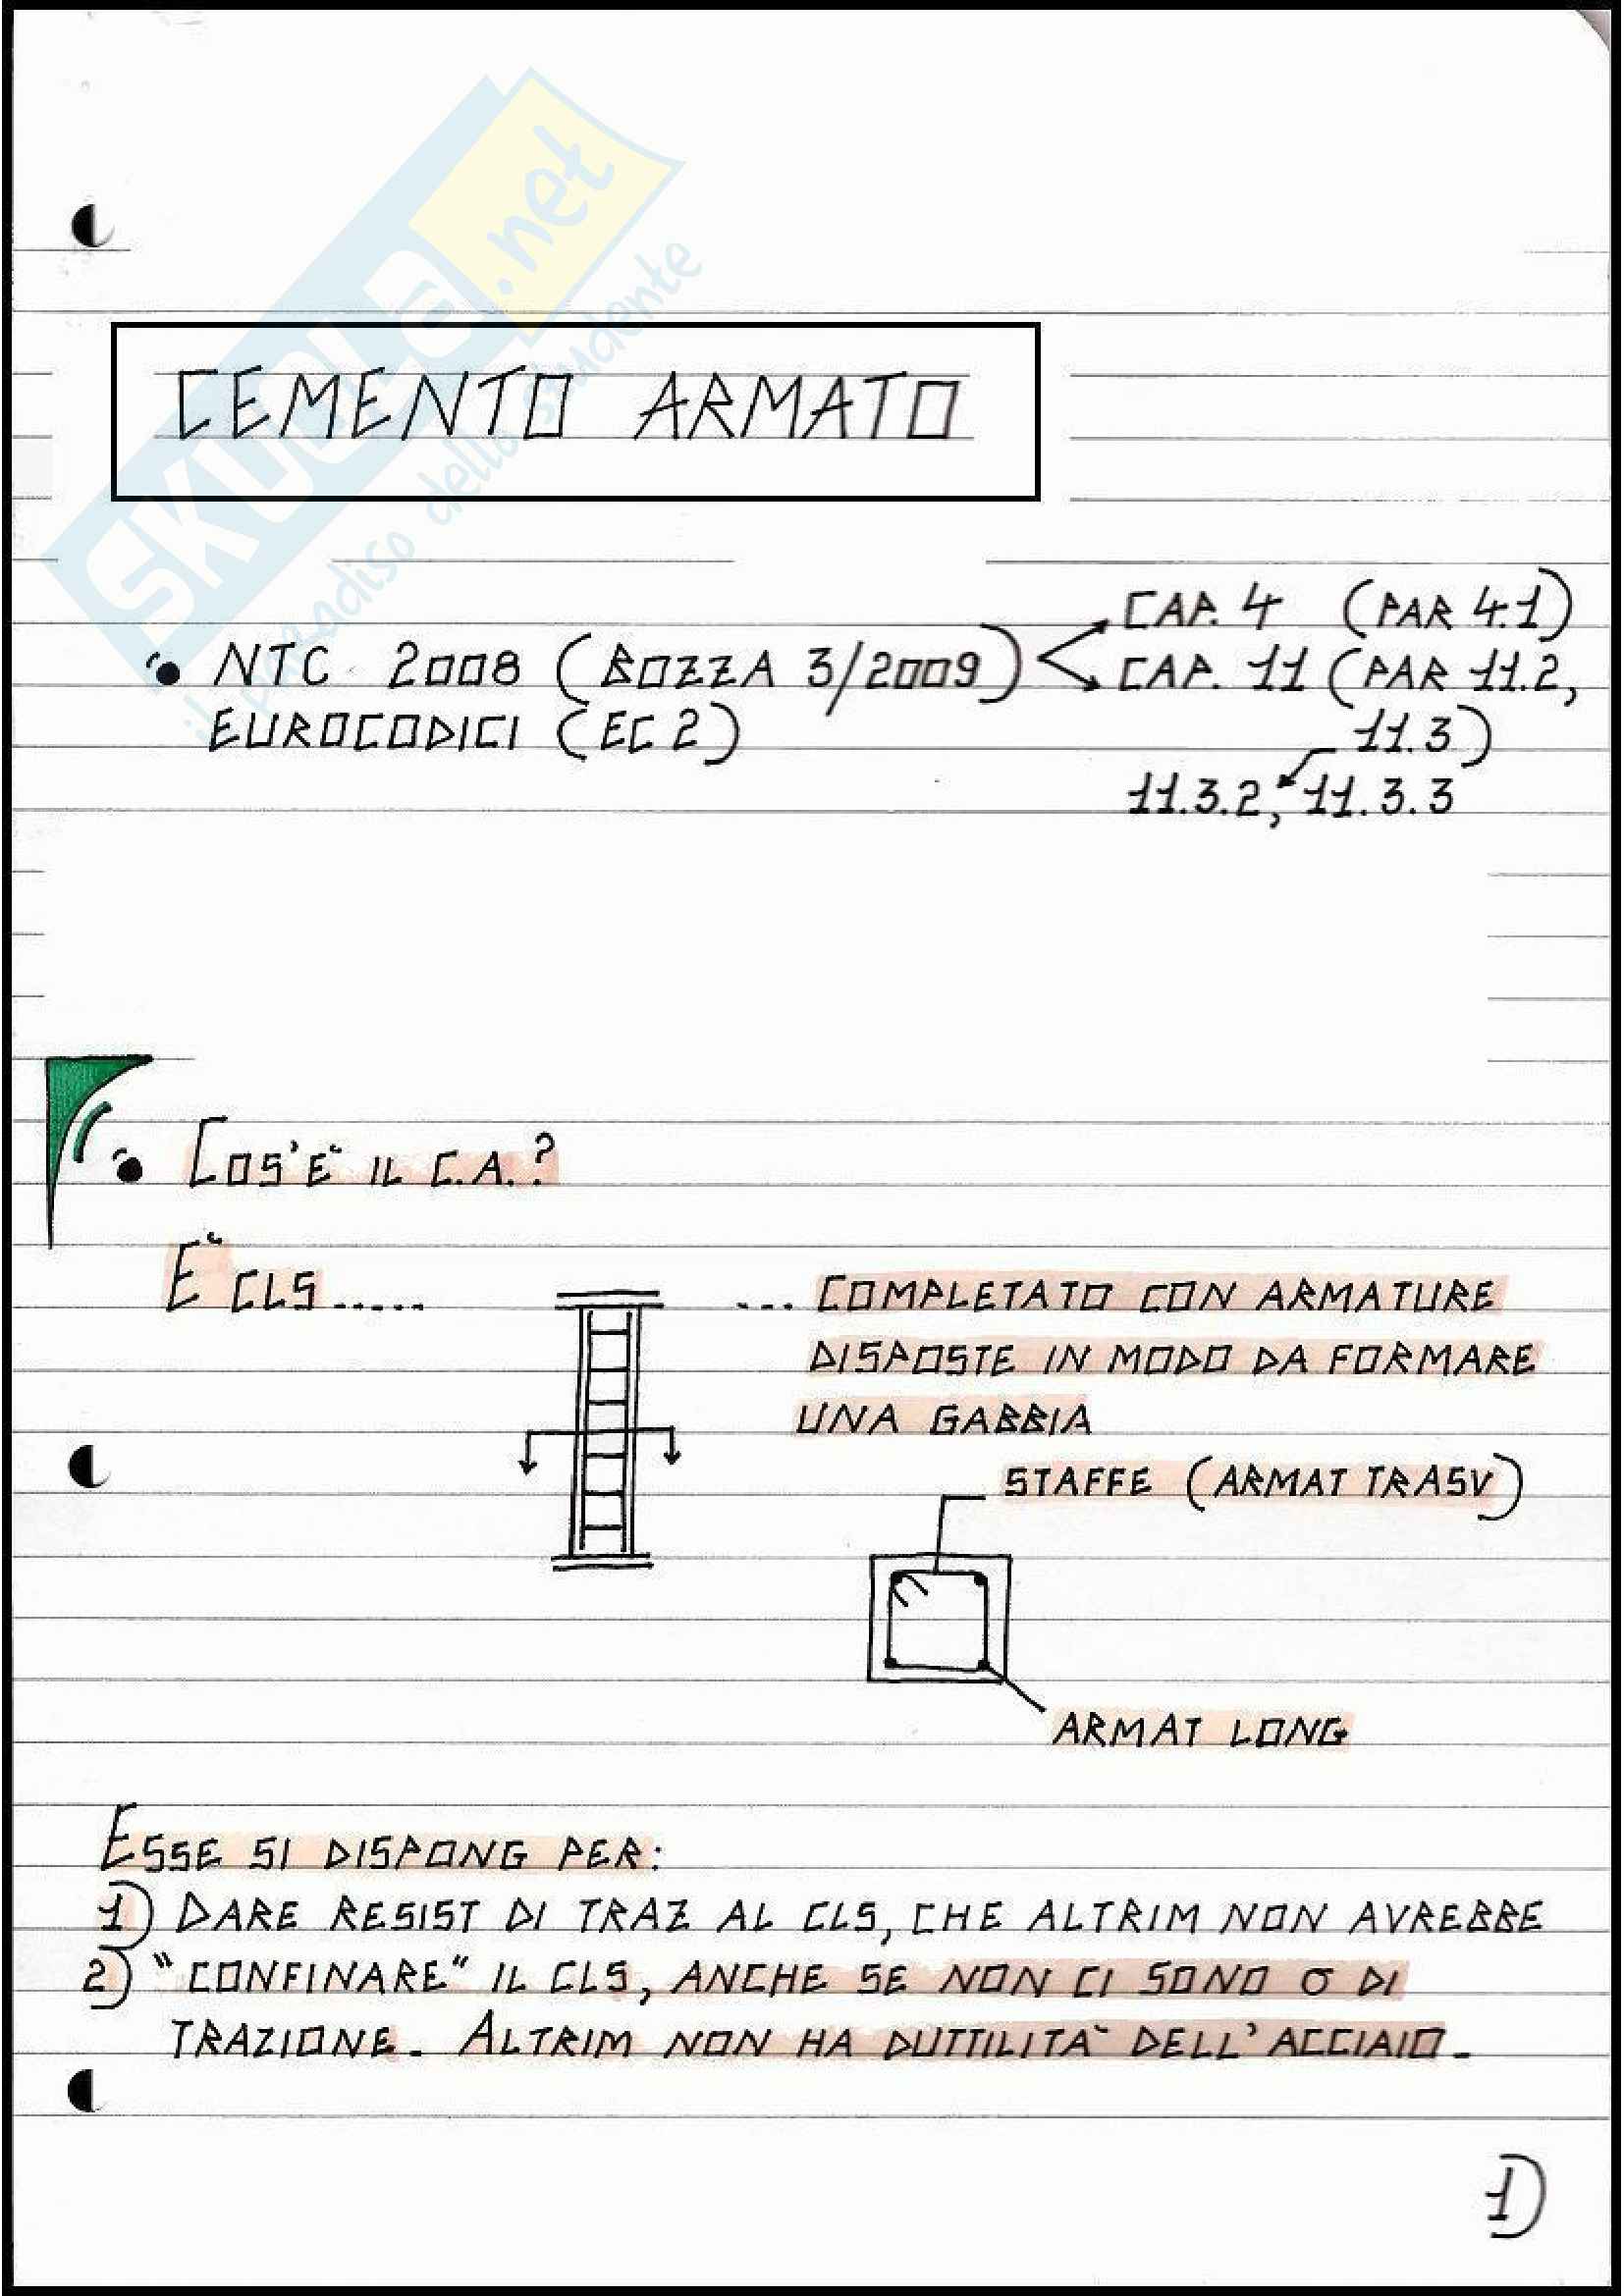 SKUOLA.net
il paradiso dello studente
CEMENTO ARMATO
NTC 2008 (BOZZA 3/2009)
CAP. 4 (PAR 4.1)
CAP. 11 (PAR 11.2,
11.3)
EUROCODICI (EC2)
11.3.2, 11.3.3
COS'È IL C.A.?
È CLS.....
... COMPLETATO CON ARMATURE
DISPOSTE IN MODO DA FORMARE
UNA GABBIA
STAFFE (ARMAT TRASV)
ARMAT LONG
ESSE SI DISPONG PER:
1) DARE RESIST DI TRAZ AL CLS, CHE ALTRIM NON AVREBBE
2) "CONFINARE" IL CLS, ANCHE SE NON CI SONO σ DI
TRAZIONE. ALTRIM NON HA DUTTILITÀ DELL'ACCIAIO.
1)